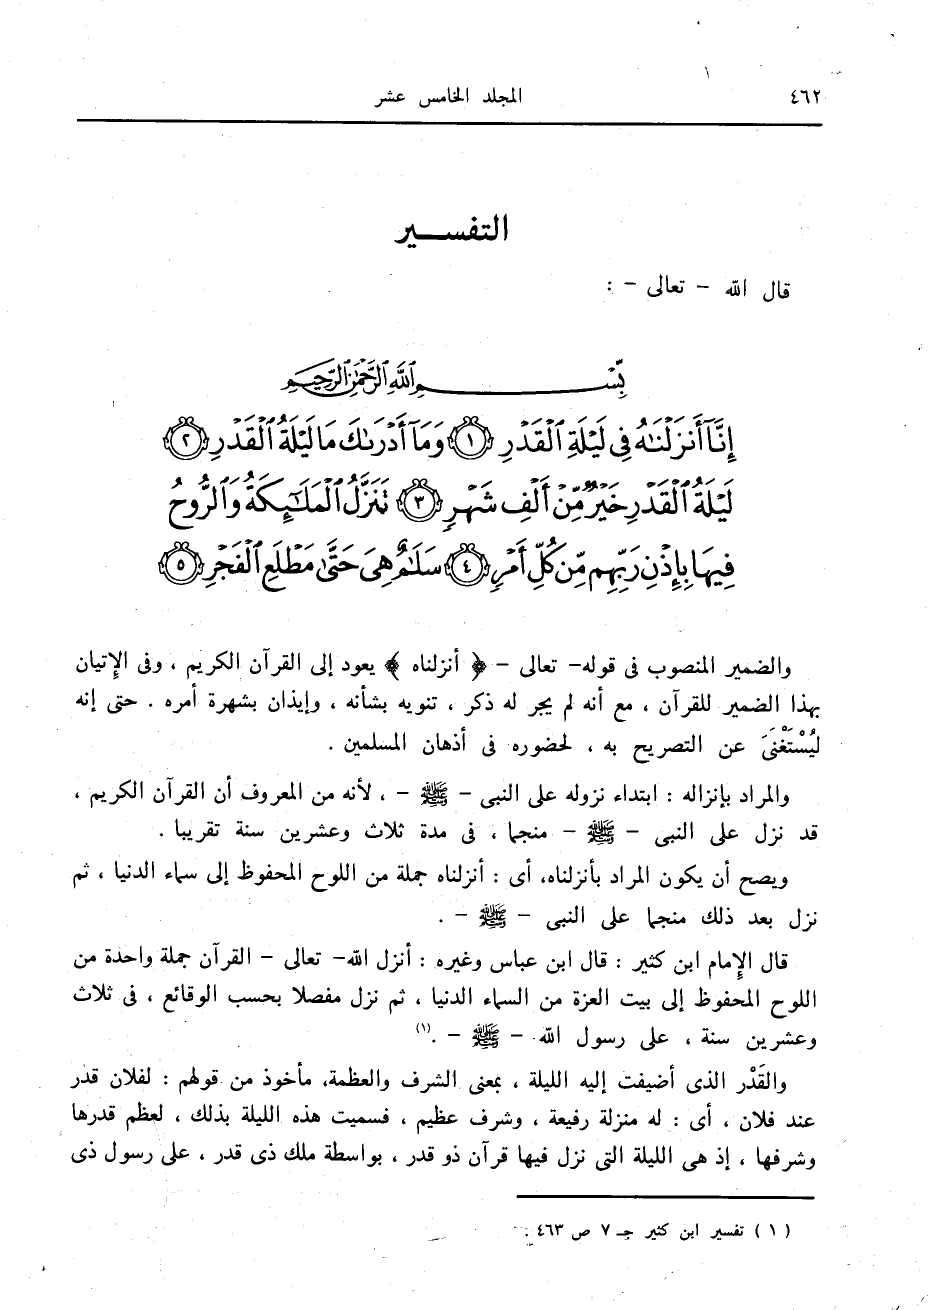 ٤٦٢ المجلد الخامس عشر
التفسـير
قال الله – تعالى – :
بِسْمِ ٱللَّهِ ٱلرَّحْمَٰنِ ٱلرَّحِيمِ
إِنَّآ أَنزَلْنَٰهُ فِى لَيْلَةِ ٱلْقَدْرِ ١ وَمَآ أَدْرَىٰكَ مَا لَيْلَةُ ٱلْقَدْرِ ٢
لَيْلَةُ ٱلْقَدْرِ خَيْرٌ مِّنْ أَلْفِ شَهْرٍ ٣ تَنَزَّلُ ٱلْمَلَٰٓئِكَةُ وَٱلرُّوحُ
فِيهَا بِإِذْنِ رَبِّهِم مِّن كُلِّ أَمْرٍ ٤ سَلَٰمٌ هِىَ حَتَّىٰ مَطْلَعِ ٱلْفَجْرِ ٥
والضمير المنصوب فى قوله– تعالى – ﴿ أنزلناه ﴾ يعود إلى القرآن الكريم ، وفى الإتيان
بهذا الضمير للقرآن ، مع أنه لم يجر له ذكر ، تنويه بشأنه ، وإيذان بشهرة أمره . حتى إنه
لَيُسْتَغْنَىَ عن التصريح به ، لحضوره فى أذهان المسلمين .
والمراد بإنزاله : ابتداء نزوله على النبى – ﷺ – ، لأنه من المعروف أن القرآن الكريم ،
قد نزل على النبى – ﷺ – منجما ، فى مدة ثلاث وعشرين سنة تقريبا .
ويصح أن يكون المراد بأنزلناه، أى : أنزلناه جملة من اللوح المحفوظ إلى سماء الدنيا ، ثم
نزل بعد ذلك منجما على النبى – ﷺ – .
قال الإمام ابن كثير : قال ابن عباس وغيره : أنزل الله– تعالى – القرآن جملة واحدة من
اللوح المحفوظ إلى بيت العزة من السماء الدنيا ، ثم نزل مفصلا بحسب الوقائع ، فى ثلاث
وعشرين سنة ، على رسول الله – ﷺ – .(١)
والقَدْر الذى أضيفت إليه الليلة ، بمعنى الشرف والعظمة، مأخوذ من قولهم : لفلان قدر
عند فلان ، أى : له منزلة رفيعة ، وشرف عظيم ، فسميت هذه الليلة بذلك ، لعظم قدرها
وشرفها ، إذ هى الليلة التى نزل فيها قرآن ذو قدر ، بواسطة ملك ذى قدر ، على رسول ذى
( ١ ) تفسير ابن كثير جـ ٧ ص ٤٦٣ .